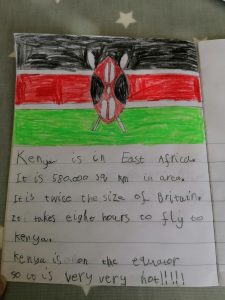 Kenya is in East Africa.
It is 580.000 sq km in area.
It is twice the size of Britain.
It takes eight hours to fly to
Kenya.
Kenya is on the equator
so it is very very hot!!!!!